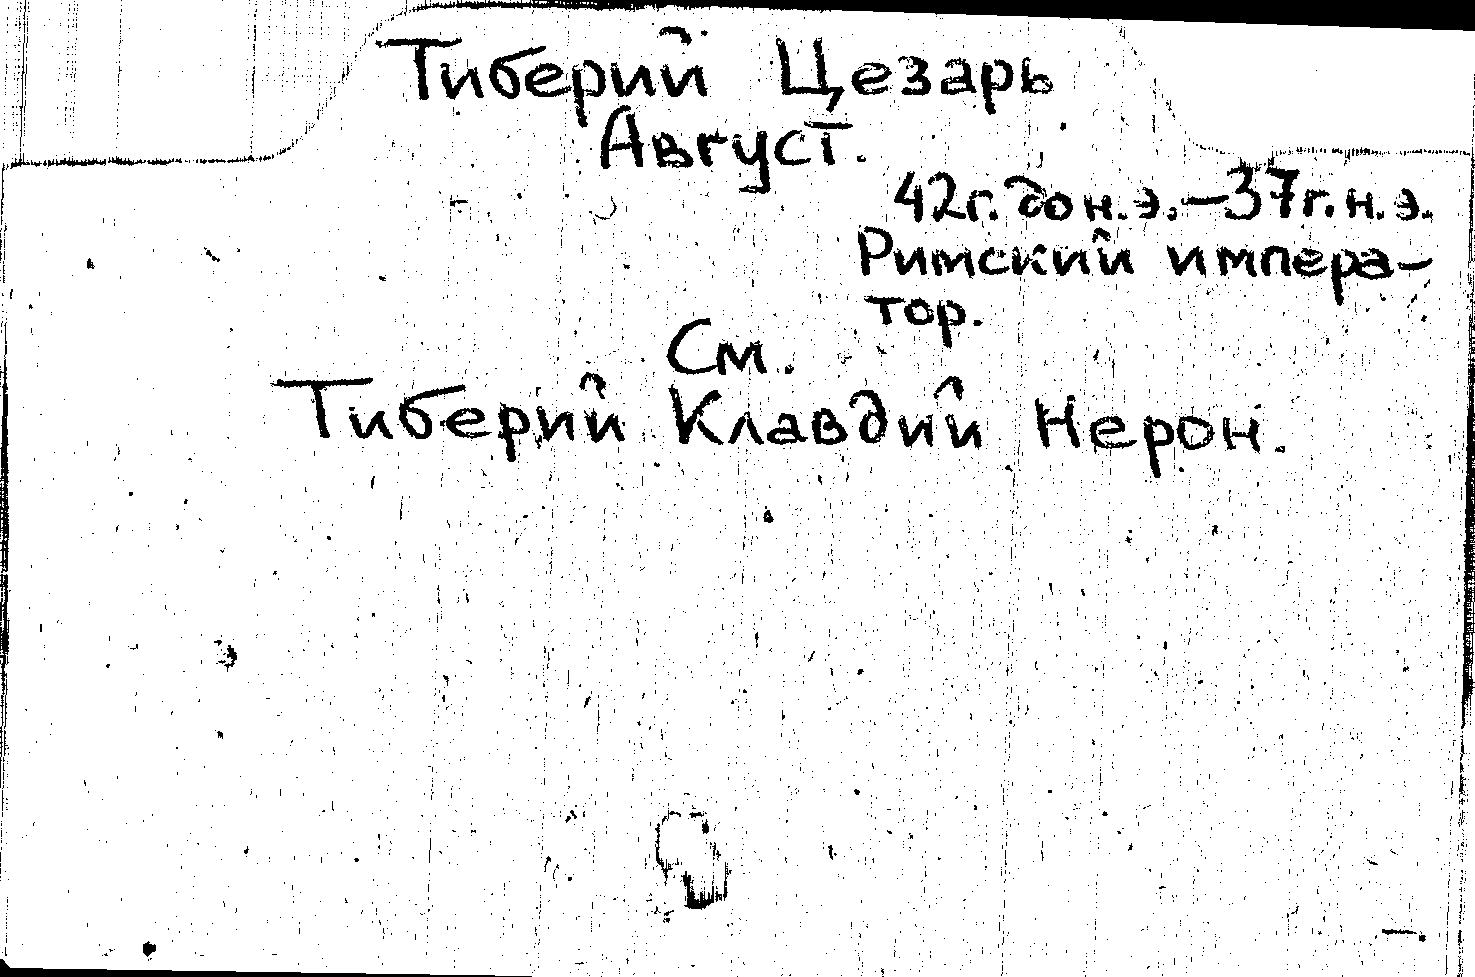 Тиберий Цезарь
Август.
42г. до н.э.—37г. н.э.
Римский импера-
тор.
См.
Тиберий Клавдий Нерон.